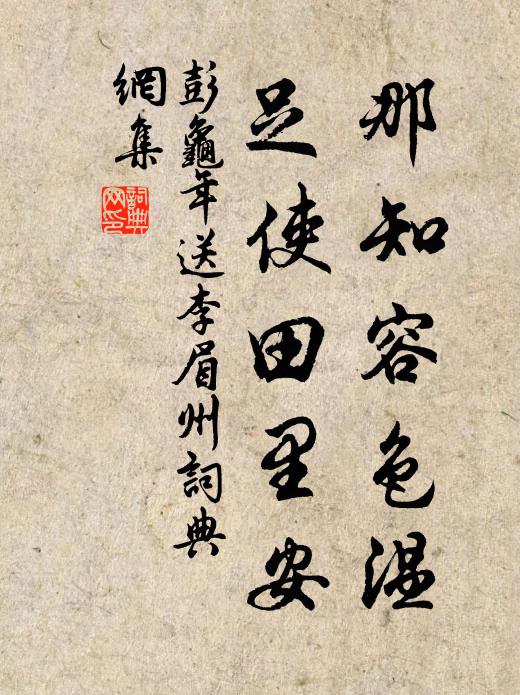 那知容色温
足使田里安
彭龜年送李眉州詞典
網集
詞典
网印